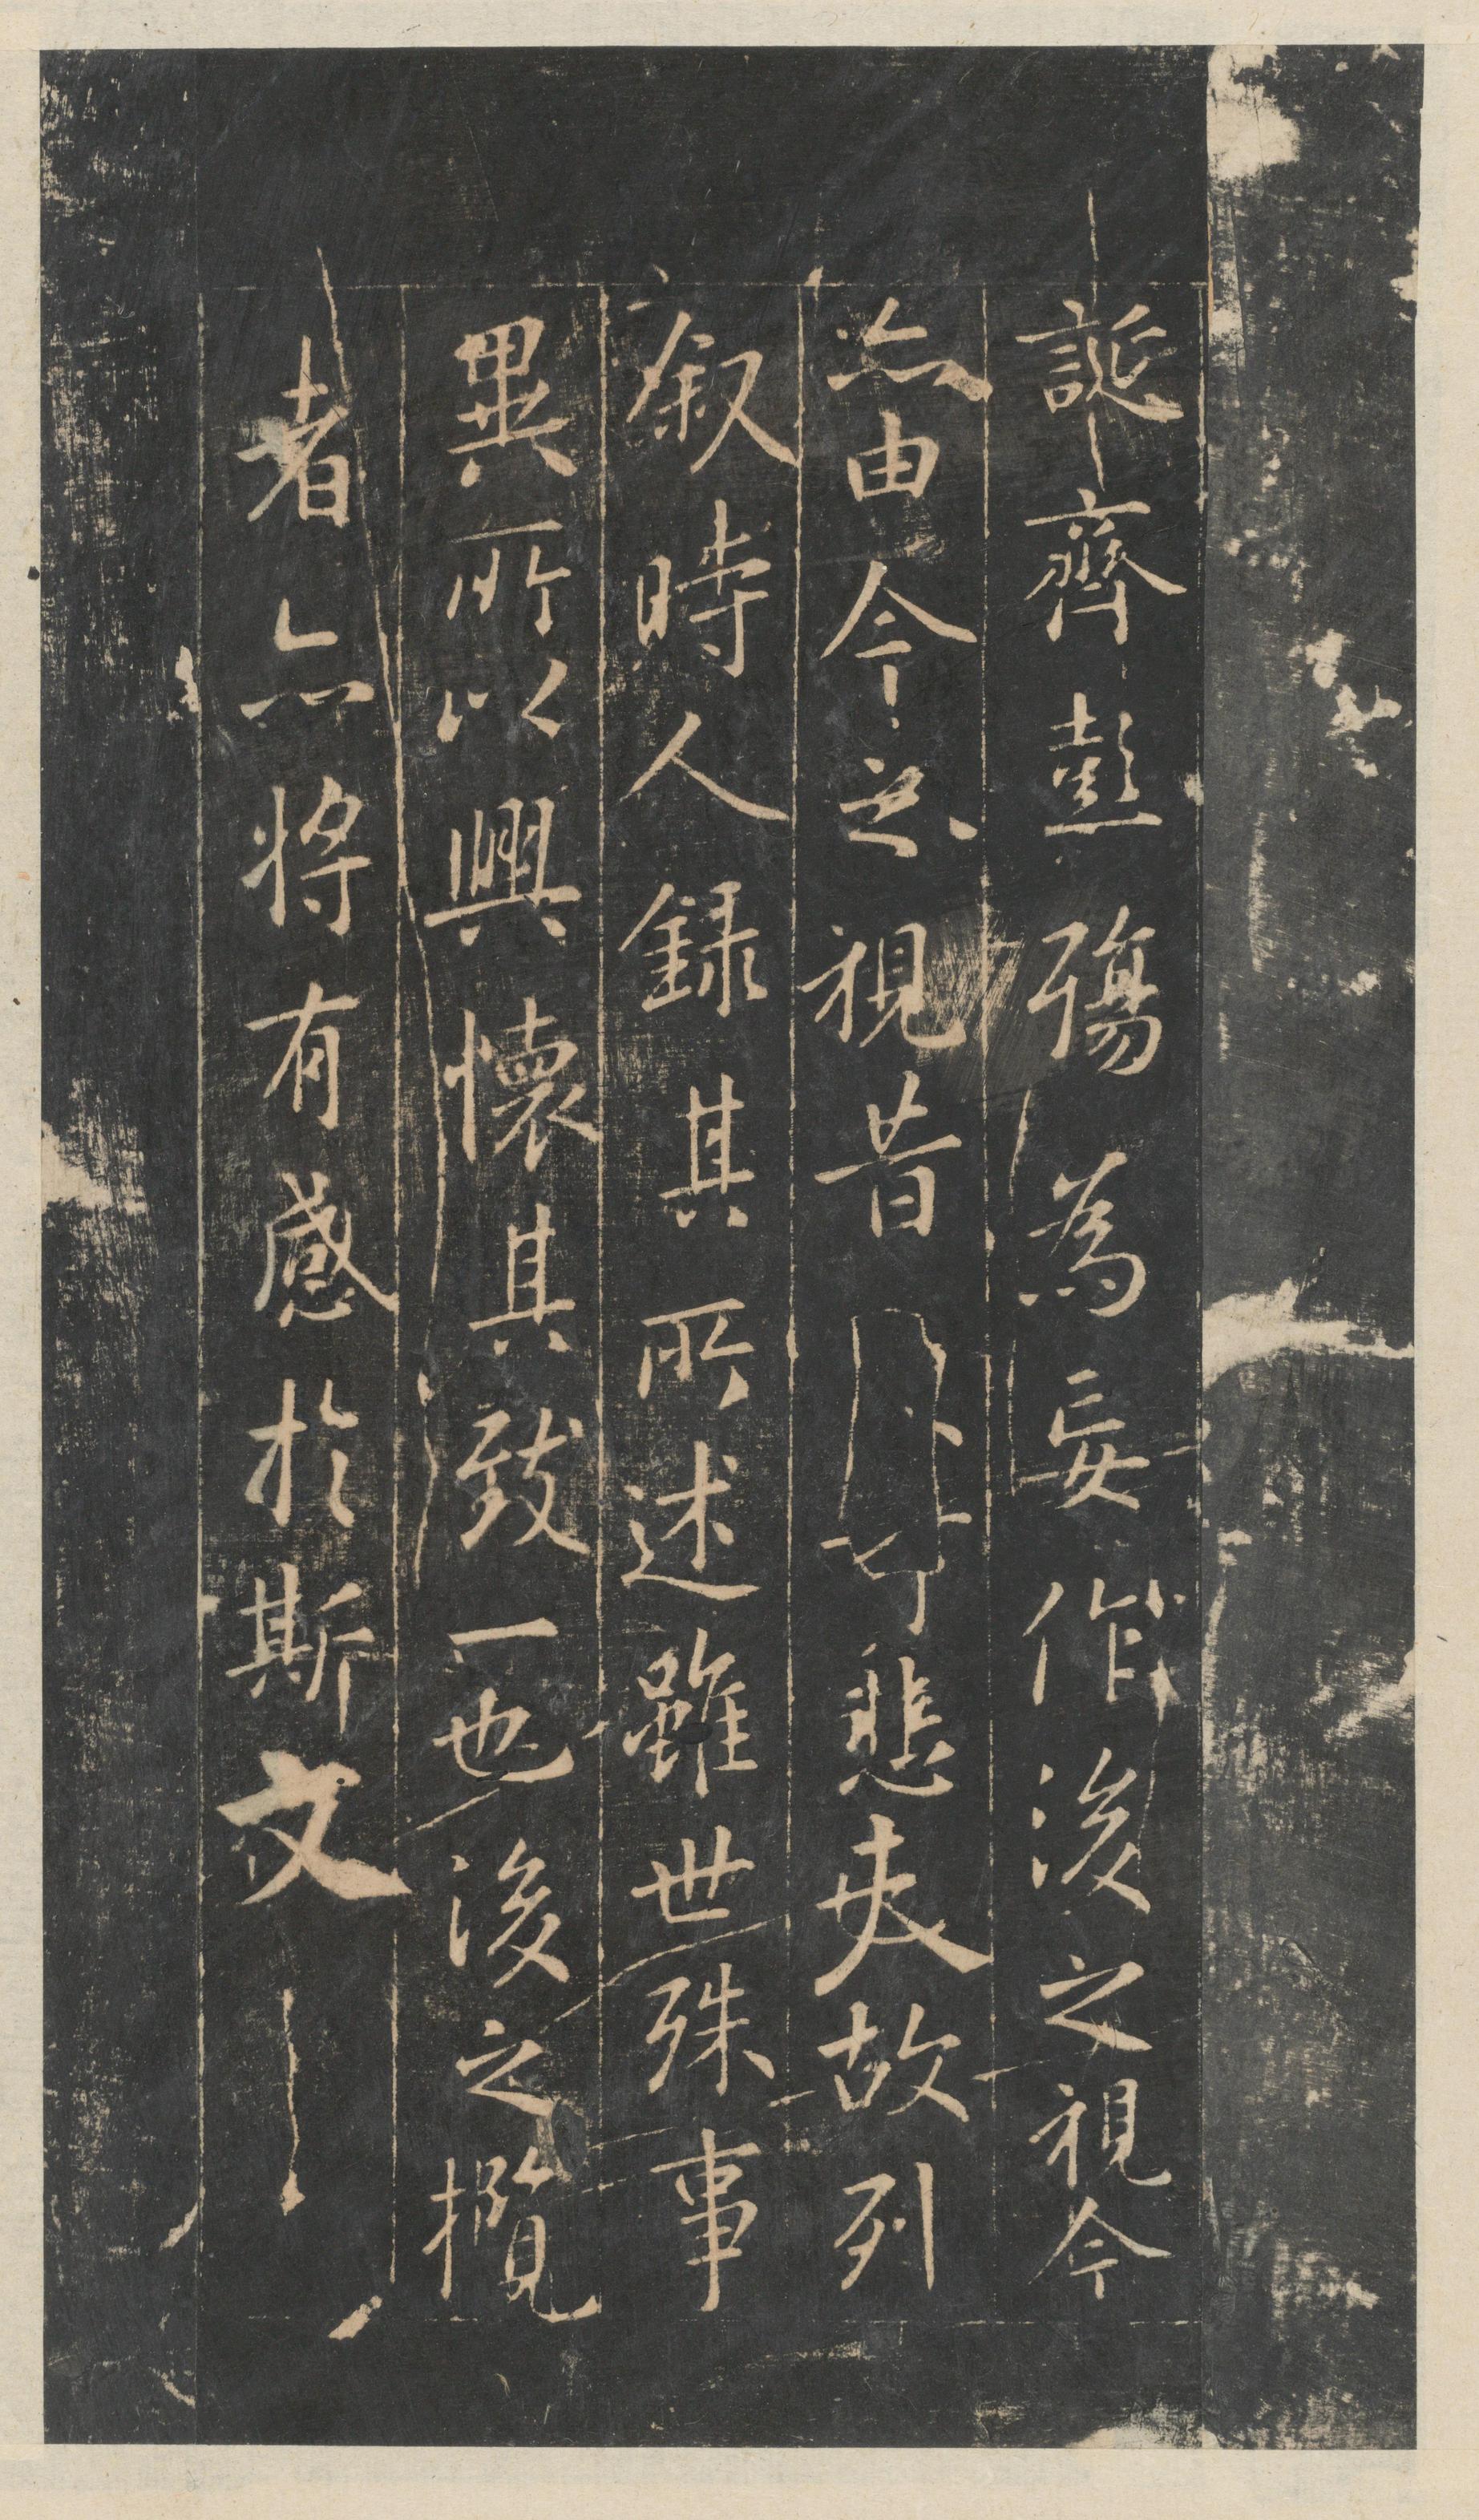 誕齊彭殤為妄作後之視今
亦由今之視昔悲夫故列
叙時人録其所述雖世殊事
異所以興懷其致一也後之攬
者亦將有感於斯文